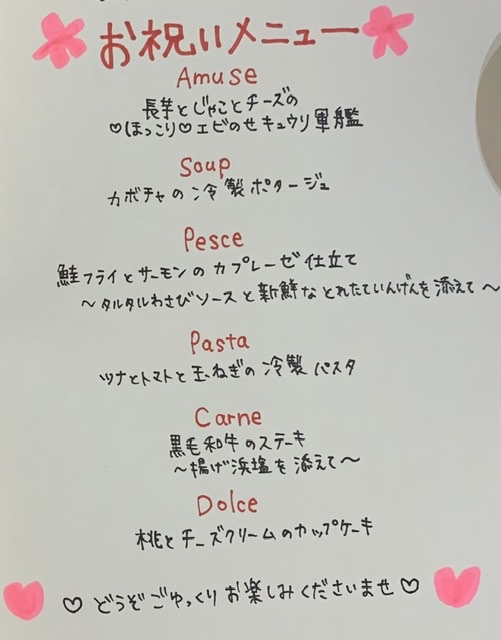 お祝いメニュー
Amuse
長芋とじゃことチーズの
♡ほっこり♡エビのせキュウリ軍艦
Soup
カボチャの冷製ポタージュ
Pesce
鮭フライとサーモンのカプレーゼ仕立て
～タルタルわさびソースと新鮮なとれたていんげんを添えて～
Pasta
ツナとトマトと玉ねぎの冷製パスタ
Carne
黒毛和牛のステーキ
～揚げ浜塩を添えて～
Dolce
桃とチーズクリームのカップケーキ
♡どうぞごゆっくりお楽しみくださいませ♡